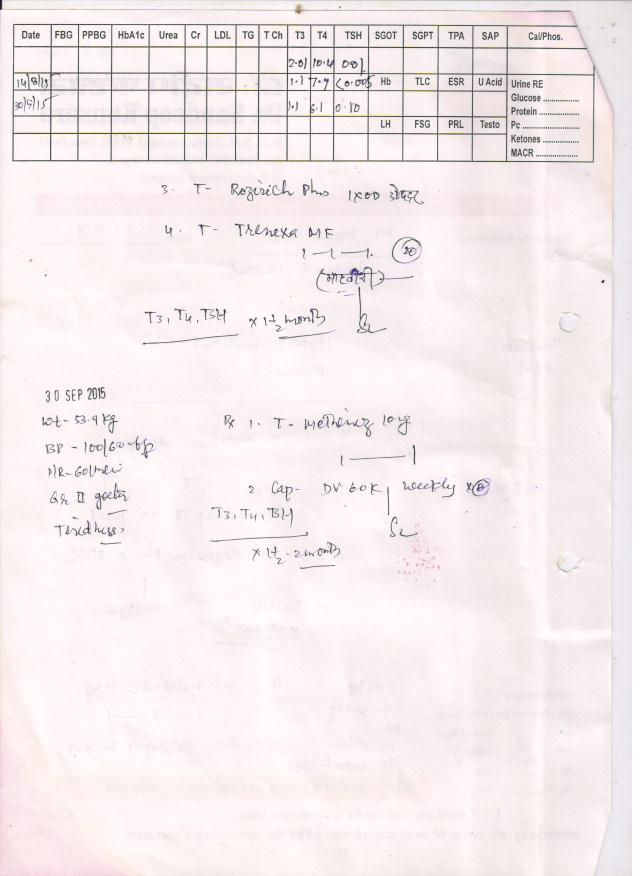 Date FBG PPBG HbA1c Urea Cr LDL TG T Ch T3 T4 TSH SGOT SGPT TPA SAP Cal/Phos.
2.01 10.4
14/8/15 1.1 7.9 <0.005 Hb TLC ESR U Acid Urine RE
Glucose ................
30/9/15 1.1 6.1 0.10
Protein ................
LH FSG PRL Testo Pc ................
Ketones ................
MACR ................
3. T- Rozirich Plus 1XOD
4. T- Trenexa MF
1-1-1. 20
T3, T4, TSH x 1½ month
30 SEP 2015
Wt- 53.9kg
BP - 100/60
Rx 1. T- Methimez 10mg
1 ——— 1
Gr II goiter
2. Cap- DV 60K weekly x 8
T3, T4, TSH
Tiredness
x 1½-2 month